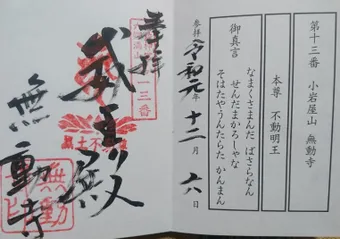 第十三番 小岩屋山 無動寺
本尊 不動明王
御真言
なまくさまんだ ばさらなん
せんだまかろしゃな
そはたやうんたらた かんまん
参拝 令和元年 十二月 六日
奉拝
無動寺